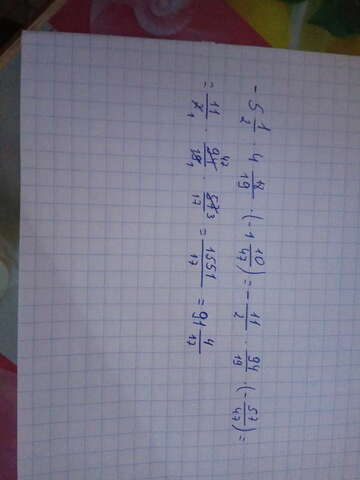 - 5 1/2 · 4 18/19 · (-1 10/47) = - 11/2 · 94/19 · (- 57/47) =
= 11/2 1 · 94 47/19 1 · 57 3/17 = 1551/17 = 91 4/17